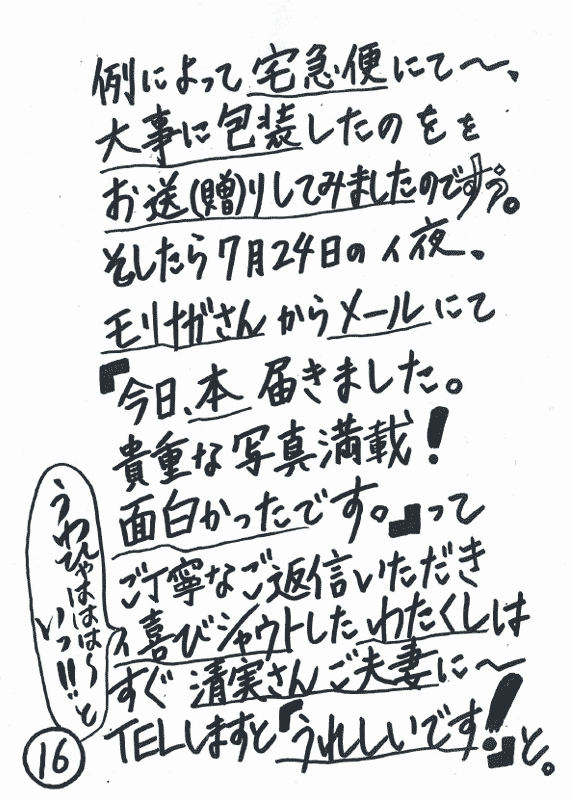 例によって宅急便にて〜、
大事に包装したのをを
お送(贈)りしてみましたのですっ。
そしたら7月24日のィ夜、
モリナガさんからメールにて
『今日、本届きました。
貴重な写真満載！
面白かったです。』って
ご丁寧なご返信いただき
ィ喜びシャウトしたわたくしは
すぐ清実さんご夫妻に〜
TELしますと『うれしいです！』と。
うわひゃははは〜
いっ!!と
16